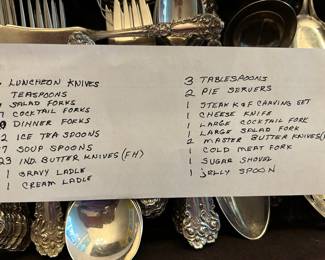 LUNCHEON KNIVES
TEASPOONS
SALAD FORKS
COCKTAIL FORKS
DINNER FORKS
2 ICE TEA SPOONS
7 SOUP SPOONS
23 IND. BUTTER KNIVES (FH)
1 GRAVY LADLE
1 CREAM LADLE
3 TABLESPOONS
2 PIE SERVERS
1 STEAK K&F CARVING SET
1 CHEESE KNIFE
1 LARGE COCKTAIL FORK
1 LARGE SALAD FORK
2 MASTER BUTTER KNIVES
1 COLD MEAT FORK
1 SUGAR SHOVEL
1 JELLY SPOON